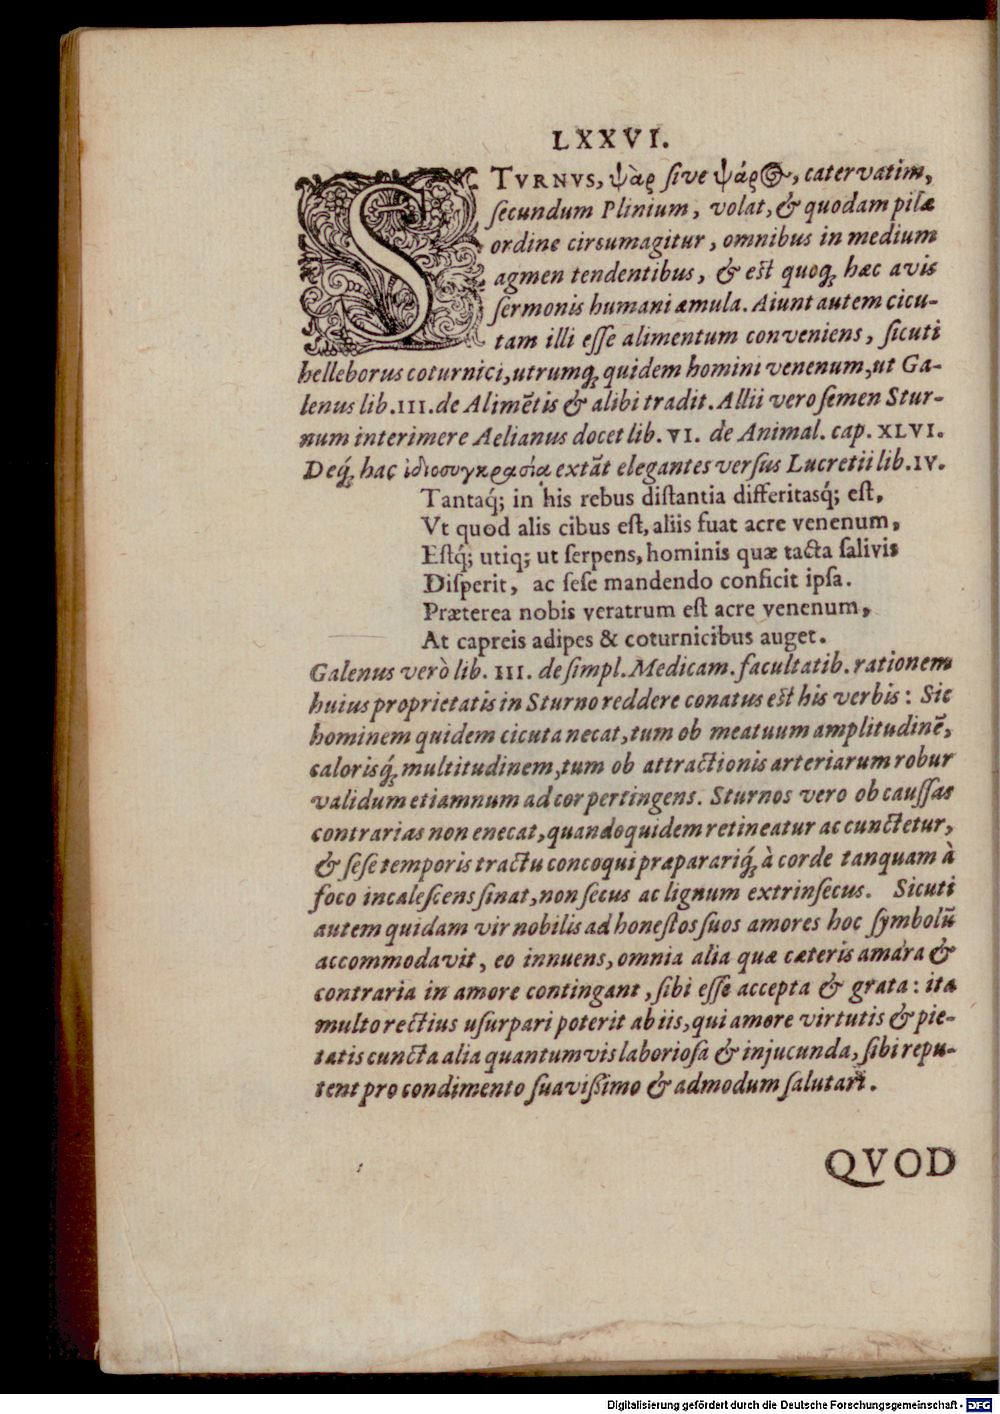 LXXVI.
STVRNVS, ψὰρ ſive ψάρος, catervatim,
ſecundum Plinium, volat, & quodam pilæ
ordine circumagitur, omnibus in medium
agmen tendentibus, & eſt quoq; hæc avis
ſermonis humani æmula. Aiunt autem cicu-
tam illi eſſe alimentum conveniens, ſicuti
helleborus coturnici, utrumq; quidem homini venenum, ut Ga-
lenus lib. III. de Alimētis & alibi tradit. Allii vero ſemen Stur-
num interimere Aelianus docet lib. VI. de Animal. cap. XLVI.
Deq́; hac ἰδιοσυγκρασίᾳ extāt elegantes verſus Lucretii lib. IV.
Tantaq́; in his rebus diſtantia differitasq́; eſt,
Vt quod alis cibus eſt, aliis fuat acre venenum,
Eſtq́; utiq; ut ſerpens, hominis quæ tacta ſalivis
Diſperit, ac ſeſe mandendo conficit ipſa.
Præterea nobis veratrum eſt acre venenum,
At capreis adipes & coturnicibus auget.
Galenus verò lib. III. de ſimpl. Medicam. facultatib. rationem
huius proprietatis in Sturno reddere conatus eſt his verbis: Sic
hominem quidem cicuta necat, tum ob meatuum amplitudinē,
calorisq́; multitudinem, tum ob attractionis arteriarum robur
validum etiamnum ad cor pertingens. Sturnos vero ob cauſſas
contrarias non enecat, quandoquidem retineatur ac cunctetur,
& ſeſe temporis tractu concoqui præparariq́; à corde tanquam à
foco incaleſcens ſinat, non ſecus ac lignum extrinſecus. Sicuti
autem quidam vir nobilis ad honeſtos ſuos amores hoc ſymbolū
accommodavit, eo innuens, omnia alia quæ cæteris amara &
contraria in amore contingant, ſibi eſſe accepta & grata: ita
multo rectius uſurpari poterit ab iis, qui amore virtutis & pie-
tatis cuncta alia quantumvis laborioſa & injucunda, ſibi repu-
tent pro condimento ſuaviſſimo & admodum ſalutari.
QVOD
Digitalisierung gefördert durch die Deutsche Forschungsgemeinschaft - DFG